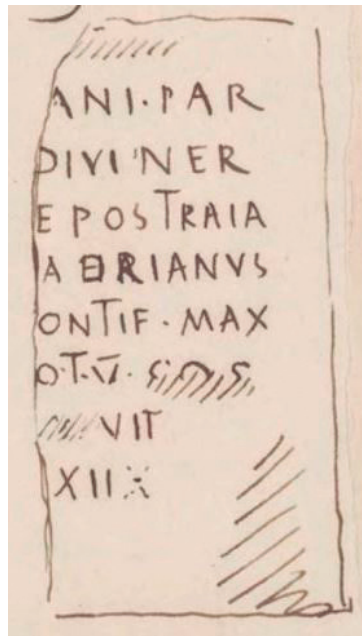 ANI·PAR
DIVI NER
E POS TRAIA
A DRIANVS
ONTIF·MAX
O·T·V·
VIT
XII